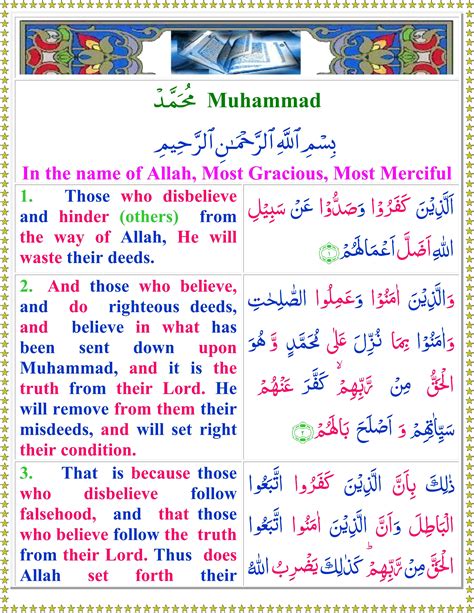 مُحَمَّدٌ Muhammad
بِسْمِ اللهِ الرَّحْمٰنِ الرَّحِيْمِ
In the name of Allah, Most Gracious, Most Merciful
1. Those who disbelieve
and hinder (others) from
the way of Allah, He will
waste their deeds.
اَلَّذِيْنَ كَفَرُوْا وَصَدُّوْا عَنْ سَبِيْلِ
اللهِ اَضَلَّ اَعْمَالَهُمْ ۝١
2. And those who believe,
and do righteous deeds,
and believe in what has
been sent down upon
Muhammad, and it is the
truth from their Lord. He
will remove from them their
misdeeds, and will set right
their condition.
وَالَّذِيْنَ اٰمَنُوْا وَعَمِلُوا الصّٰلِحٰتِ
وَاٰمَنُوْا بِمَا نُزِّلَ عَلٰى مُحَمَّدٍ وَّ هُوَ
الْحَقُّ مِنْ رَّبِّهِمْ ۙ كَفَّرَ عَنْهُمْ
سَيِّاٰتِهِمْ وَ اَصْلَحَ بَالَهُمْ ۝٢
3. That is because those
who disbelieve follow
falsehood, and that those
who believe follow the truth
from their Lord. Thus does
Allah set forth their
ذٰلِكَ بِاَنَّ الَّذِيْنَ كَفَرُوا اتَّبَعُوا
الْبَاطِلَ وَاَنَّ الَّذِيْنَ اٰمَنُوا اتَّبَعُوا
الْحَقَّ مِنْ رَّبِّهِمْ ؕ كَذٰلِكَ يَضْرِبُ اللهُ